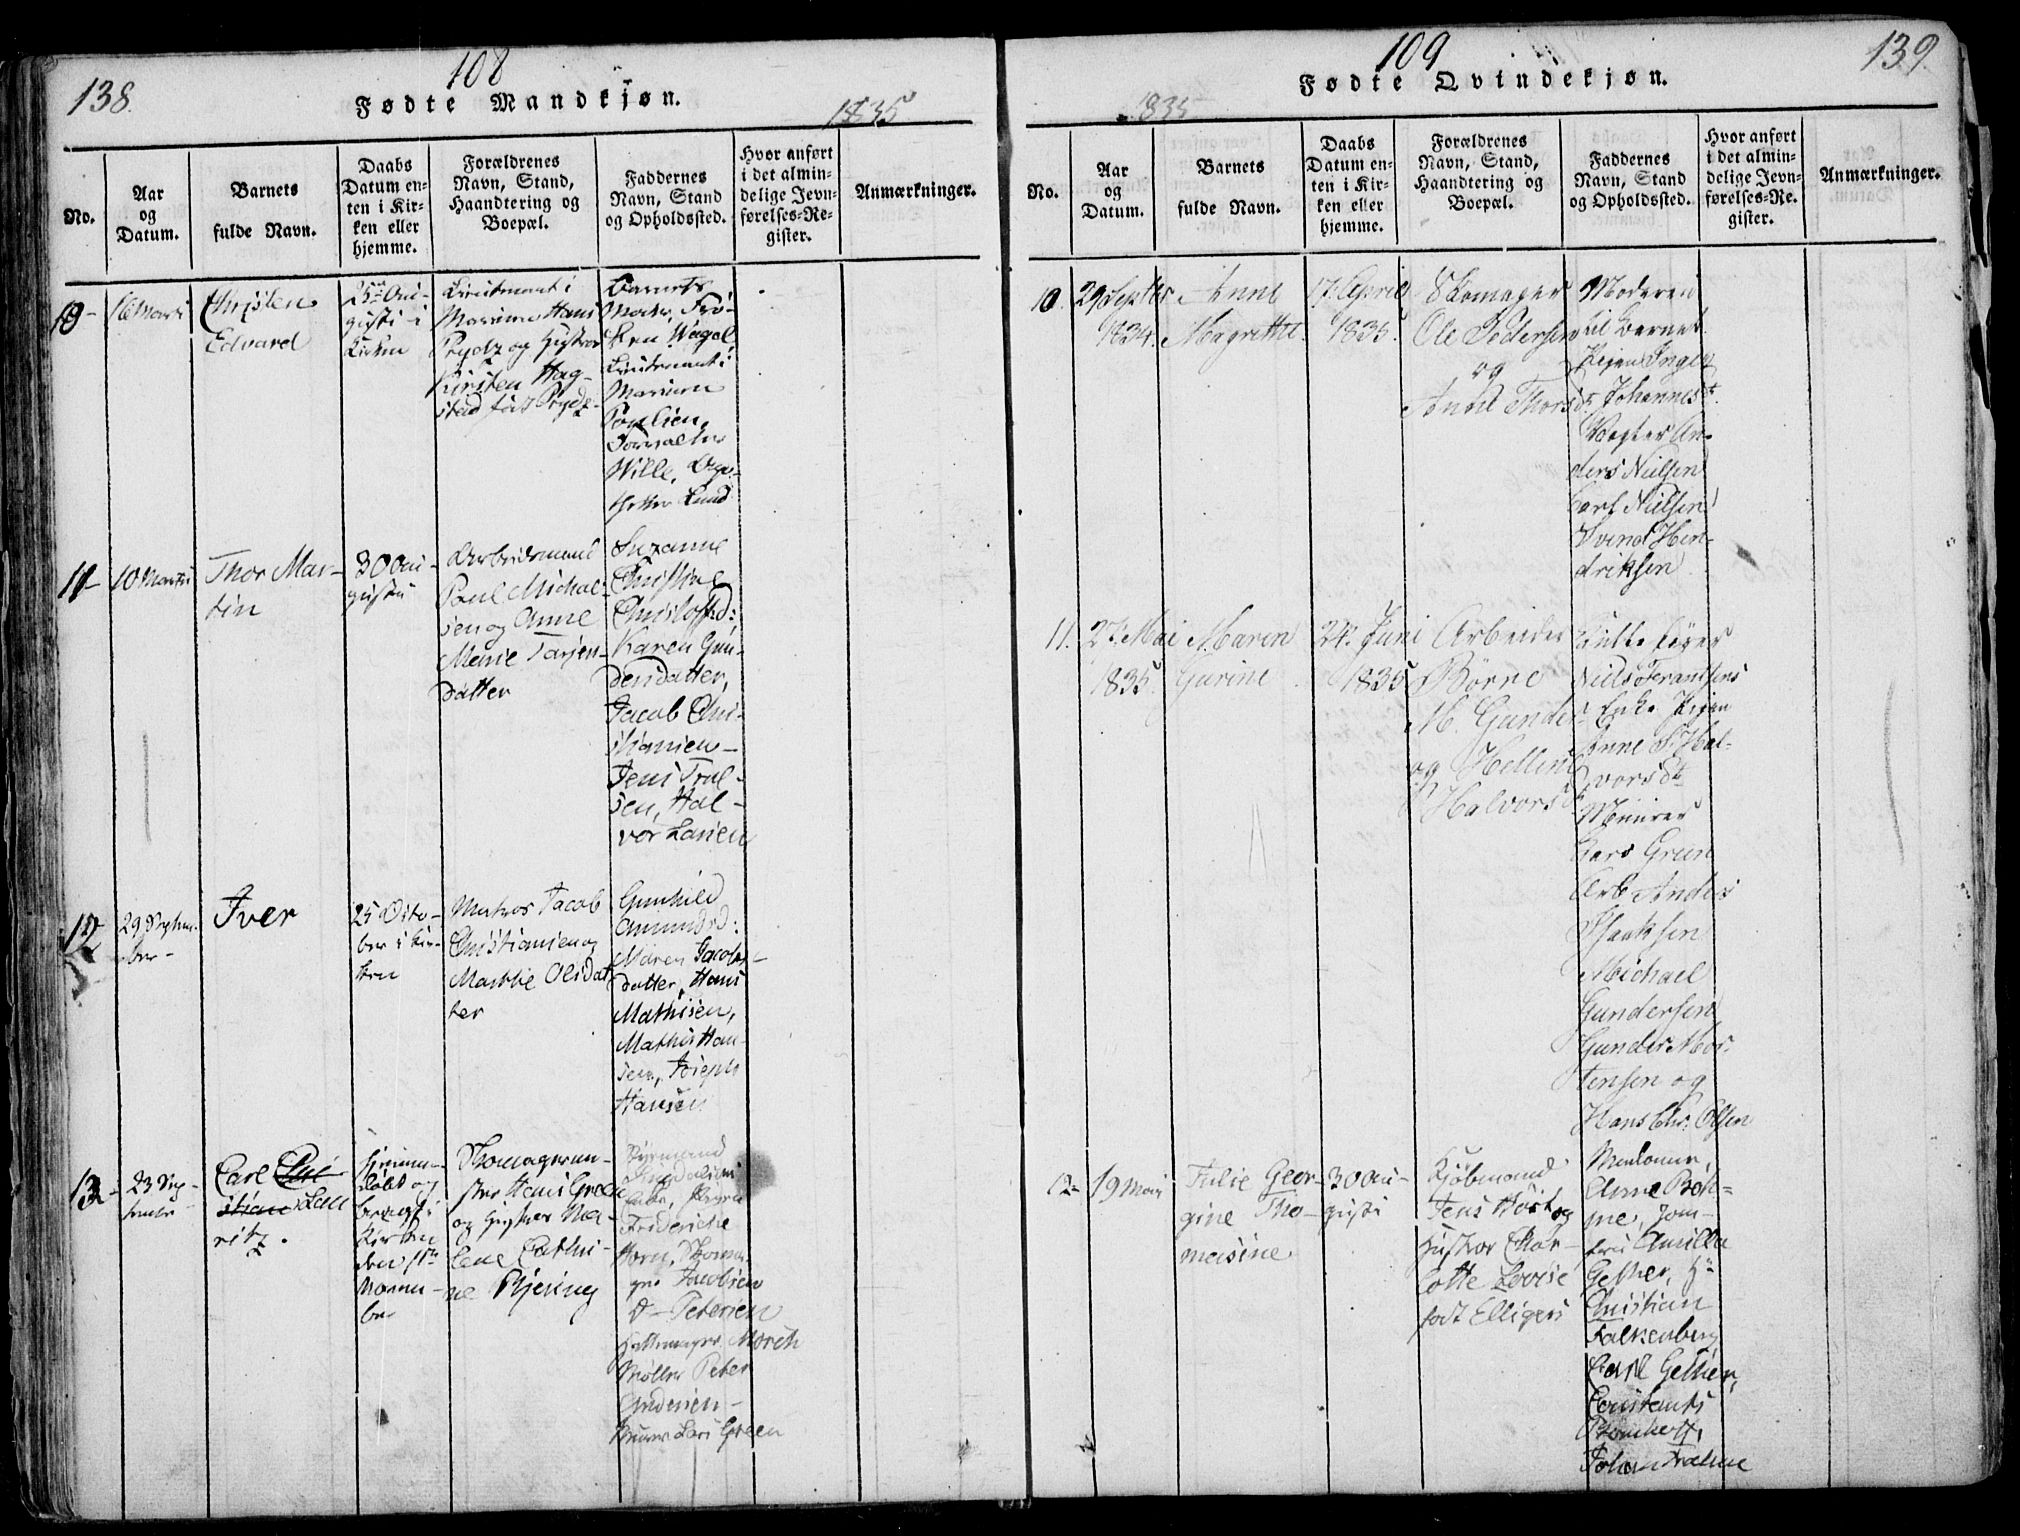 138.
108
Fødte Mandkjøn.
1835
No.
Aar
og
Datum.
Barnets
fulde Navn.
Daabs
Datum en-
ten i Kir-
ken eller
hjemme.
Forældrenes
Navn, Stand,
Haandtering og
Boepæl.
Faddernes
Navn, Stand
og Opholdssted.
Hvor anført
i det almin-
delige Jevn-
førelses-Re-
gister.
Anmærkninger.
10-
16 Marti
Christen
Edvard
25de Au-
gusti i
Kirken
Lieutenant i
Marinen Hans
Prydz og Hustroe
Kirsten Hag-
stad født Prydz-
Barnets
Moder, Frø-
ken Wagel,
Lieutenant i
Marinen
Poulsen,
Forvalter
Wille,
Lund
11-
10 Martii
Thor Mar-
tin
30 Au-
gusti
Arbeidsmand
Poul Michal-
sen og Anne
Marie Tarjen-
datter
Suzanne
Christine
Christofd:
Karen Gun-
dersdatter,
Jacob Chri-
stiansen-
Jens Trul-
sen, Hal-
vor Larsen
12
29 Septem-
ber-
Iver
25 Octo-
ber i Kir-
ken
Matros Jacob
Christiansen og
Marthe Olsdat
ter
Gunhild
Amundsd:
Maren Jacobs-
datter, Hans
Mathisen,
Mathis Han-
sen, Joseph
Hansen
13-
23 Sep-
tember
Carl Chri-
stian Lau
ritz.
hjemme-
døbt og
i
Kirken
den 1ste
Novem-
ber
Skomagerme-
ster Hans Green
og Hustroe Ma-
Cathri-
ne Bjering
Styrmand
Frideriche
Horn,
Jacobsen
D- Petersen
Hattemager Morch
Møller Peter
Andersen-
Lars Green
109
139.
Fødte Qvindekjøn.
1835
No.
Aar
og
Datum.
Barnets
fulde Navn.
Daabs
Datum en-
ten i Kir-
ken eller
hjemme.
Forældrenes
Navn, Stand,
Haandtering og
Boepæl.
Faddernes
Navn, Stand
og Opholdssted.
Hvor anført
i det almin-
delige Jevn-
førelses-Re-
gister.
Anmærkninger.
10.
29 Septbr
1834.
Anne
Magrethe.
17. April
1835.
Skomager
Ole Pedersen
og
Anne Thorsdt
Moderen
til Barnet
Pigen Inger
Johannesdt.
Vægter An-
ders Nielsen
Carl Nielsen
Svend Hen-
driksen
11.
27. Mai
1835.
Maren
Gurine
24. Juni
1835
Arbeider
Børre
M. Gunders.
og Helline
Halvorsdt.
Niels Frantsens
Enke Pigen
Anne S. Hal-
vorsdt
Muurer
Lars Green
Arb Anders
Isaksen
Michael
Gundersen
Gunder Mor-
tensen og
Hans Chr. Olsen
12-
19 Mai
Julie Geor-
gine Tho-
masine
30 Au-
gusti
Kjøbmand
Jens Höst og
Hustroe Char-
lotte Lovise,
født Elligers
Madame,
Anne Boh-
me, Jom-
fru Amilla
Gether, Hr
Christian
Falkenberg
Carl Gether,
Constantis
Johan Dahne